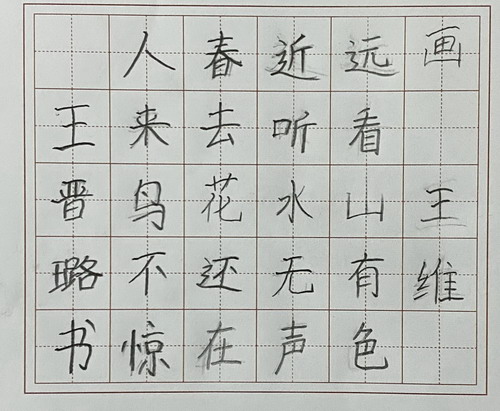 画王维
远看山有色
近听水无声
春去花还在
人来鸟不惊
王晋璐书